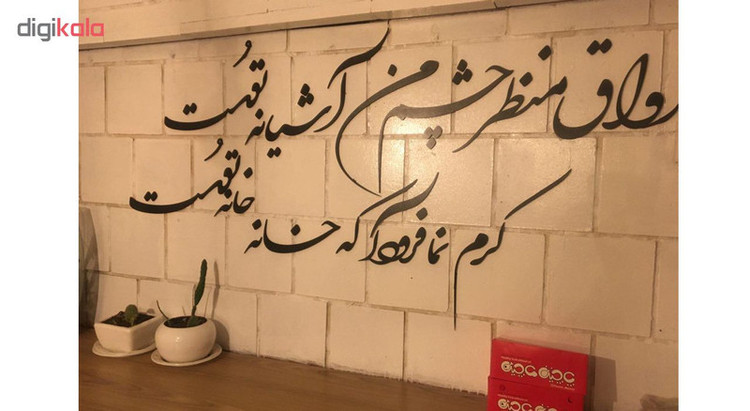 digikala
رواق منظر چشم من آشیانه توست
کرم نما و فرود آ که خانه خانه توست